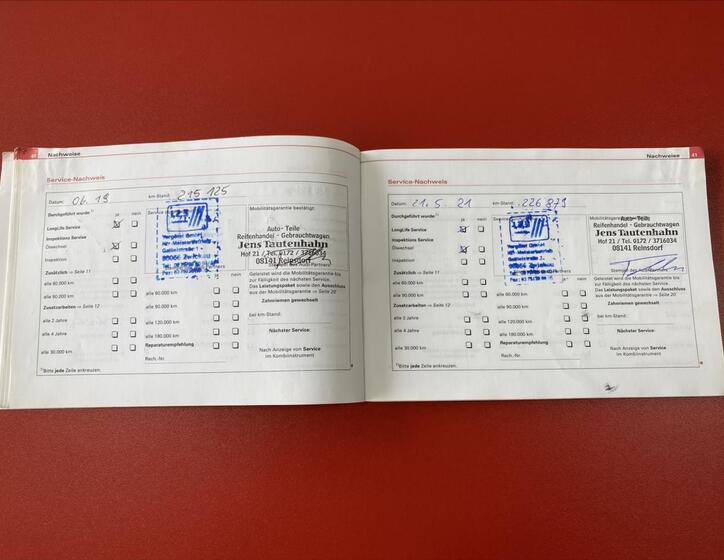 Nachweise
Service-Nachweis
Datum: 06.19
km-Stand: 215 125
Durchgeführt wurde 1)
ja nein
Mobilitätsgarantie bestätigt:
LongLife Service
Inspektions Service
Ölwechsel
Inspektion
Auto- Teile
Reifenhandel - Gebrauchtwagen
Jens Tautenhahn
Hof 21 / Tel. 0172 / 3716034
08141 Reinsdorf
Zusätzlich ⇒ Seite 11
alle 60.000 km
alle 90.000 km
Zusatzarbeiten ⇒ Seite 12
alle 2 Jahre
alle 4 Jahre
alle 30.000 km
ja nein
alle 60.000 km
alle 90.000 km
alle 120.000 km
alle 180.000 km
Reparaturempfehlung
Rech.-Nr.
Geleistet wird die Mobilitätsgarantie bis
zur Fälligkeit des nächsten Service.
Das Leistungspaket sowie den Ausschluss
aus der Mobilitätsgarantie ⇒ Seite 20
Zahnriemen gewechselt
bei km-Stand:
Nächster Service:
Nach Anzeige von Service
im Kombiinstrument
1) Bitte jede Zeile ankreuzen.
Nachweise 41
Service-Nachweis
Datum: 21.5 21
km-Stand: 226 879
Durchgeführt wurde 1)
ja nein
LongLife Service
Inspektions Service
Ölwechsel
Inspektion
Auto- Teile
Reifenhandel - Gebrauchtwagen
Jens Tautenhahn
Hof 21 / Tel. 0172 / 3716034
08141 Reinsdorf
Zusätzlich ⇒ Seite 11
alle 60.000 km
alle 90.000 km
Zusatzarbeiten ⇒ Seite 12
alle 2 Jahre
alle 4 Jahre
alle 30.000 km
ja nein
alle 60.000 km
alle 90.000 km
alle 120.000 km
alle 180.000 km
Reparaturempfehlung
Rech.-Nr.
Geleistet wird die Mobilitätsgarantie bis
zur Fälligkeit des nächsten Service.
Das Leistungspaket sowie den Ausschluss
aus der Mobilitätsgarantie ⇒ Seite 20
Zahnriemen gewechselt
bei km-Stand:
Nächster Service:
Nach Anzeige von Service
im Kombiinstrument
1) Bitte jede Zeile ankreuzen.